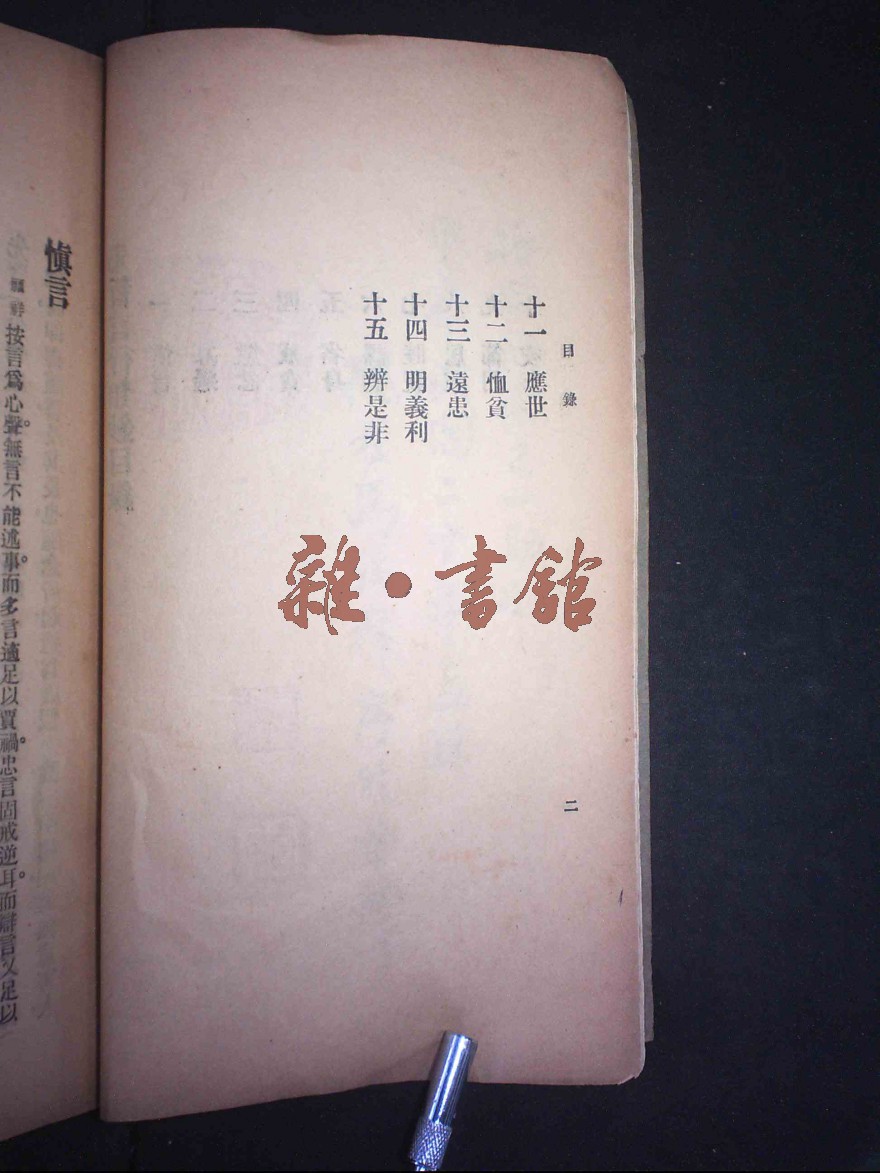 目錄
十一 應世
十二 恤貧
十三 遠患
十四 明義利
十五 辨是非
二
雜•書館
慎言
按言爲心聲。無言不能述事。而多言適足以賈禍。忠言固戒逆耳。而辯言又足以